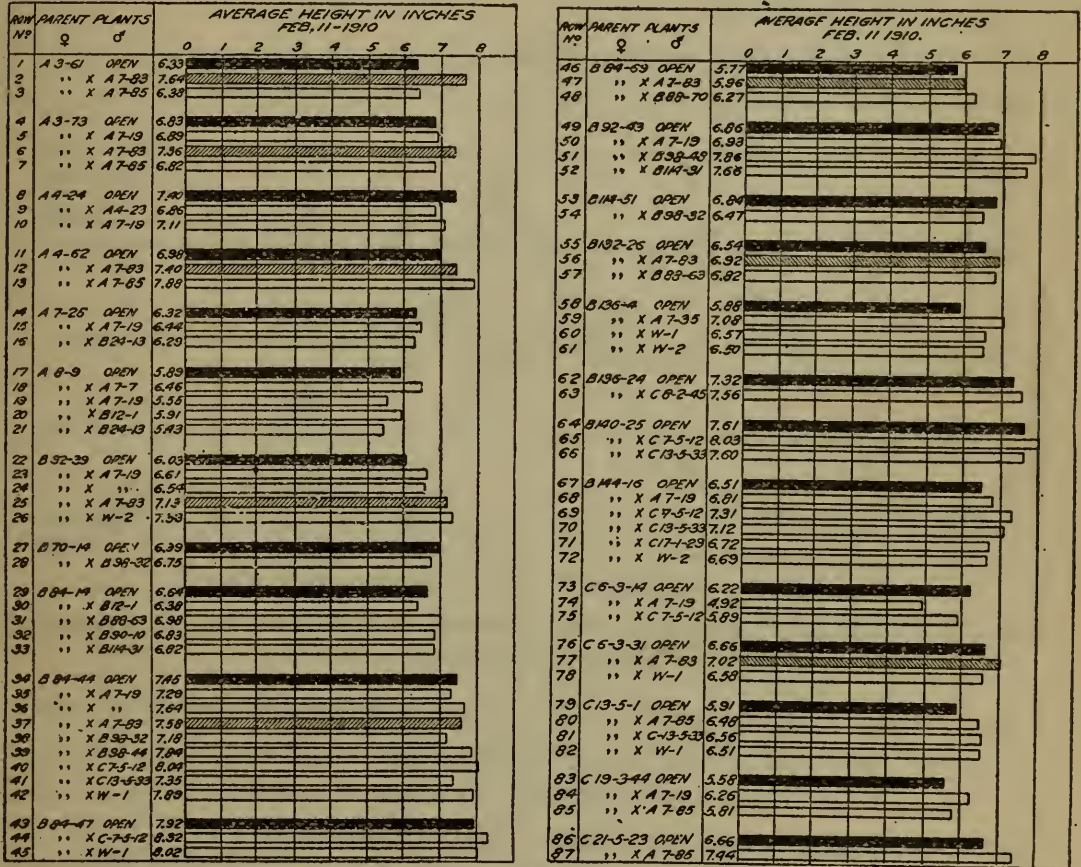 ROW Nº PARENT PLANTS ♀ ♂ AVERAGE HEIGHT IN INCHES
FEB, 11-1910
0 1 2 3 4 5 6 7 8
1 A 3-61 OPEN 6.33
2 ,, X A 7-83 7.64
3 ,, X A 7-85 6.38
4 A 3-73 OPEN 6.83
5 ,, X A 7-19 6.89
6 ,, X A 7-83 7.36
7 ,, X A 7-85 6.82
8 A 4-24 OPEN 7.40
9 ,, X A 4-23 6.86
10 ,, X A 7-19 7.11
11 A 4-62 OPEN 6.98
12 ,, X A 7-83 7.40
13 ,, X A 7-85 7.88
14 A 7-25 OPEN 6.32
15 ,, X A 7-19 6.44
16 ,, X B 24-13 6.29
17 A 8-9 OPEN 5.89
18 ,, X A 7-7 6.46
19 ,, X A 7-19 5.55
20 ,, X B 12-1 5.91
21 ,, X B 24-13 5.43
22 B 32-39 OPEN 6.03
23 ,, X A 7-19 6.61
24 ,, X ,, 6.54
25 ,, X A 7-83 7.13
26 ,, X W-2 7.33
27 B 70-14 OPEN 6.99
28 ,, X B 98-32 6.75
29 B 84-14 OPEN 6.64
30 ,, X B 12-1 6.38
31 ,, X B 88-63 6.98
32 ,, X B 90-10 6.83
33 ,, X B 114-31 6.82
34 B 84-44 OPEN 7.45
35 ,, X A 7-19 7.29
36 ,, X ,, 7.64
37 ,, X A 7-83 7.58
38 ,, X B 98-32 7.18
39 ,, X B 98-44 7.84
40 ,, X C 7-5-12 8.04
41 ,, X C 13-5-33 7.35
42 ,, X W-1 7.89
43 B 84-47 OPEN 7.92
44 ,, X C-7-5-12 8.32
45 ,, X W-1 8.02
ROW Nº PARENT PLANTS ♀ ♂ AVERAGE HEIGHT IN INCHES
FEB. 11 1910.
0 1 2 3 4 5 6 7 8
46 B 84-69 OPEN 5.77
47 ,, X A 7-83 5.96
48 ,, X B 88-70 6.27
49 B 92-43 OPEN 6.86
50 ,, X A 7-19 6.93
51 ,, X B 98-48 7.86
52 ,, X B 114-31 7.66
53 B 114-51 OPEN 6.84
54 ,, X B 98-32 6.47
55 B 132-26 OPEN 6.54
56 ,, X A 7-83 6.92
57 ,, X B 88-63 6.82
58 B 136-4 OPEN 5.88
59 ,, X A 7-35 7.08
60 ,, X W-1 6.57
61 ,, X W-2 6.50
62 B 136-24 OPEN 7.32
63 ,, X C 6-2-45 7.56
64 B 140-25 OPEN 7.61
65 ,, X C 7-5-12 8.03
66 ,, X C 13-5-33 7.60
67 B 144-16 OPEN 6.51
68 ,, X A 7-19 6.81
69 ,, X C 7-5-12 7.31
70 ,, X C 13-5-33 7.12
71 ,, X C 17-1-29 6.72
72 ,, X W-2 6.69
73 C 6-3-14 OPEN 6.22
74 ,, X A 7-19 4.92
75 ,, X C 7-5-12 5.89
76 C 6-3-31 OPEN 6.66
77 ,, X A 7-83 7.02
78 ,, X W-1 6.58
79 C 13-5-1 OPEN 5.91
80 ,, X A 7-85 6.48
81 ,, X C-13-5-33 6.56
82 ,, X W-1 6.51
83 C 19-3-44 OPEN 5.58
84 ,, X A 7-19 6.26
85 ,, X A 7-85 5.81
86 C 21-5-23 OPEN 6.66
87 ,, X A 7-85 7.44